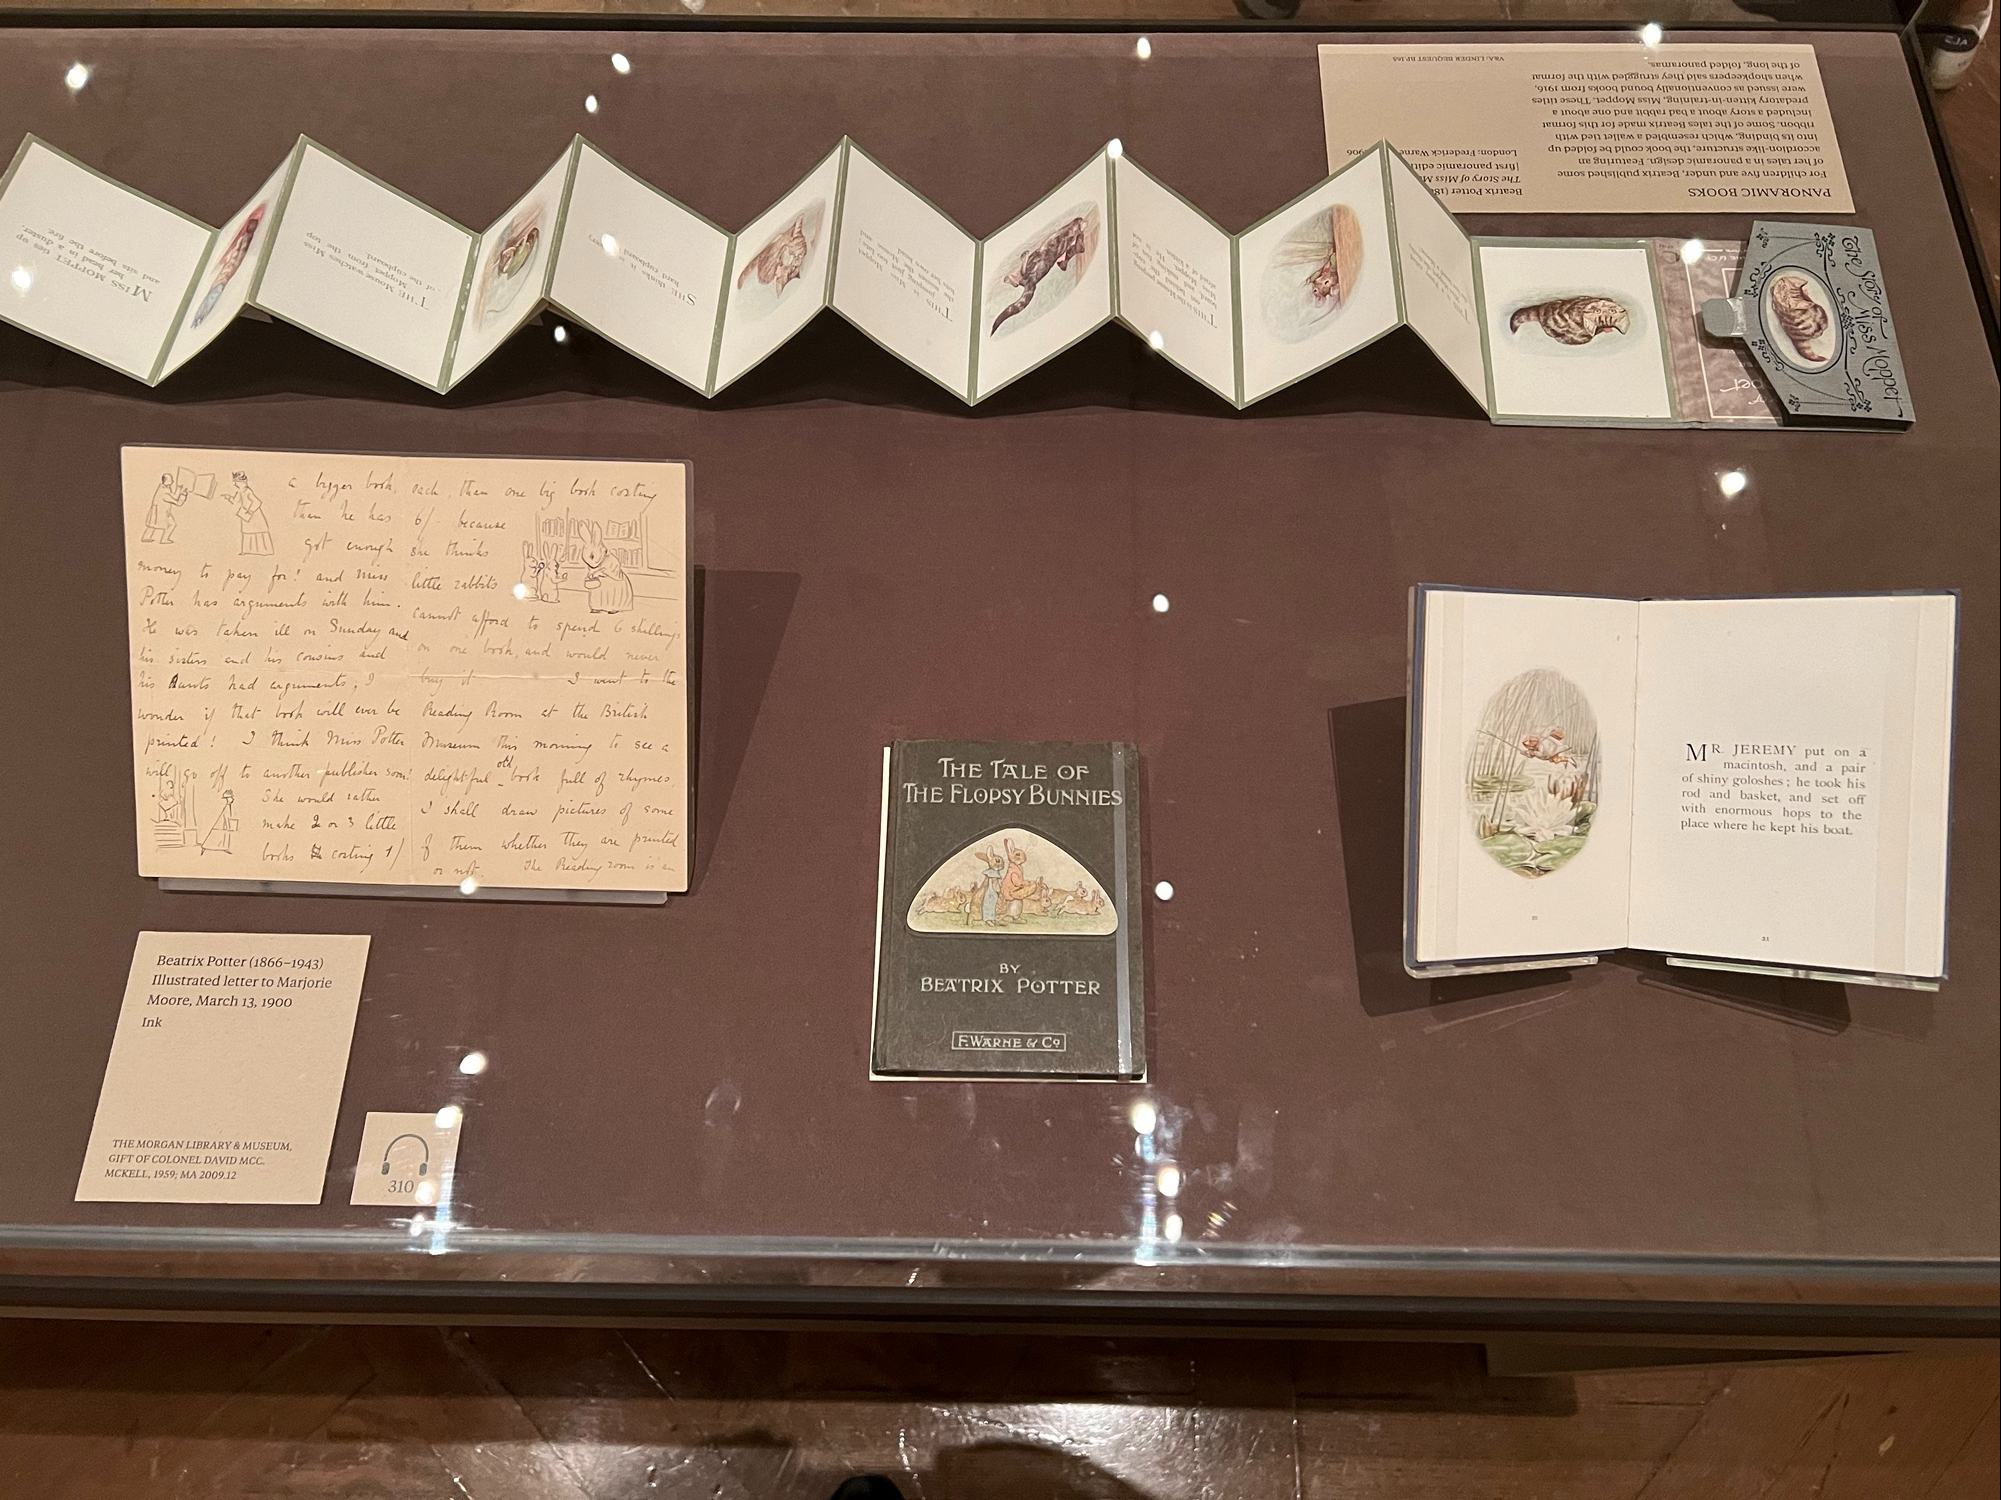 PANORAMIC BOOKS
For children five and under, Beatrix published some
of her tales in a panoramic design. Featuring an
accordion-like structure, the book could be folded up
into its binding, which resembled a wallet tied with
ribbon. Some of the tales Beatrix made for this format
included a story about a bad rabbit and one about a
predatory kitten-in-training, Miss Moppet. These titles
were issued as conventionally bound books from 1916,
when shopkeepers said they struggled with the format
of the long, folded panoramas.
Beatrix Potter (18
The Story of Miss M
first panoramic edit
London: Frederick Warne 1906
V&A: LINDER BEQUEST BP.168
The Story of
Miss Moppet
THIS is the Mouse
THIS is Miss
Moppet
SHE thinks it is
hard cupboard
THE Mouse watches Miss
Moppet from the top
of the cupboard.
MISS MOPPET ties up
her head in a duster,
and sits before the fire.
a bigger book,
than he has
got enough
money to pay for! and Miss
Potter has arguments with him.
He was taken ill on Sunday and
his sisters and his cousins and
his Aunts had arguments; I
wonder if that book will ever be
printed! I think Miss Potter
will go off to another publisher soon!
She would rather
make 2 or 3 little
books costing 1/
each, than one big book costing
6/- because
she thinks
little rabbits
cannot afford to spend 6 shillings
on one book, and would never
buy it I went to the
Reading Room at the British
Museum this morning to see a
delightful old book full of rhymes,
I shall draw pictures of some
of them whether they are printed
or not. The Reading room is an
THE TALE OF
THE FLOPSY BUNNIES
BY
BEATRIX POTTER
F. WARNE & Co
MR. JEREMY put on a
macintosh, and a pair
of shiny goloshes; he took his
rod and basket, and set off
with enormous hops to the
place where he kept his boat.
21
Beatrix Potter (1866–1943)
Illustrated letter to Marjorie
Moore, March 13, 1900
Ink
THE MORGAN LIBRARY & MUSEUM,
GIFT OF COLONEL DAVID MCC.
MCKELL, 1959; MA 2009.12
310